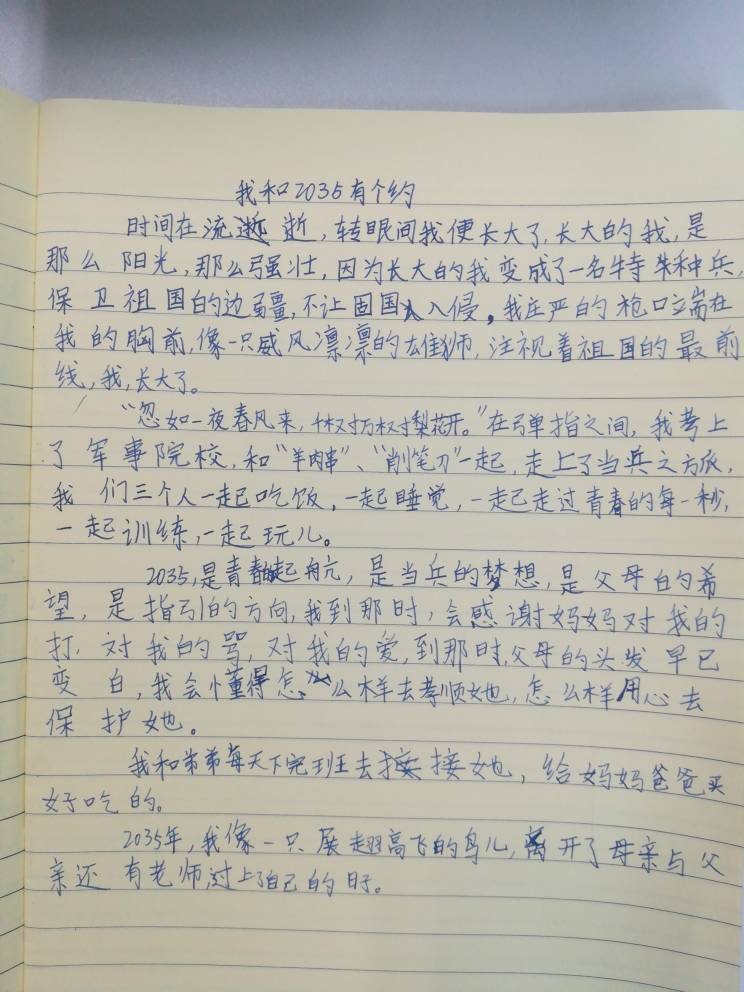 我和2035有个约
时间在流逝,转眼间我便长大了,长大的我,是
那么阳光,那么强壮,因为长大的我变成了一名特种兵,
保卫祖国的边疆,不让国人入侵,我庄严的枪口端在
我的胸前,像一只威风凛凛的雄狮,注视着祖国的最前
线,我,长大了。
“忽如一夜春风来,千树万树梨花开。”在弹指之间,我考上
了军事院校,和“羊肉串”、“削笔刀”一起,走上了当兵之旅,
我们三个人一起吃饭,一起睡觉,一起走过青春的每一秒,
一起训练,一起玩儿。
2035,是青春起航,是当兵的梦想,是父母的希
望,是指引的方向,我到那时,会感谢妈妈对我的
打,对我的骂,对我的爱,到那时,父母的头发早已
变白,我会懂得怎么样去孝顺她,怎么样用心去
保护她。
我和弟弟每天下完班去接她,给妈妈爸爸买
好吃的。
2035年,我像一只展翅高飞的鸟儿,离开了母亲与父
亲还有老师,过上了自己的日子。